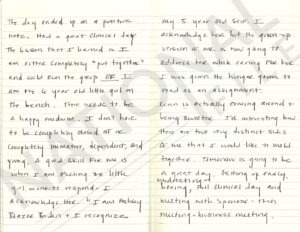 The day ended up on a positive
note. Had a great clinical day.
The lesson that I learned is I
am either completely "put together"
and could run the group OR I
am the 6 year old little girl on
the bench. There needs to be
a happy medium. I don't have
to be completely closed off or
completely immature, dependent, and
young. A good skill for me is
when I am feeling the little
girl want to respond - I
acknowledge her. "I am Ashley
Blazer Biden + I recognize
my 5 year old self. I
acknowledge her but the grown-up
version of me is now going to
address the whole caring for her.
I was given the hunger games to
read as an assignment.
is actually coming around +
being sweeter. It's interesting how
there are two very distinct sides
of me that I would like to meld
together. Tomorrow is going to be
a great day. Getting up early,
meditating,
boxing, full clinical day and
meeting with sponsor - then
meeting - business meeting.